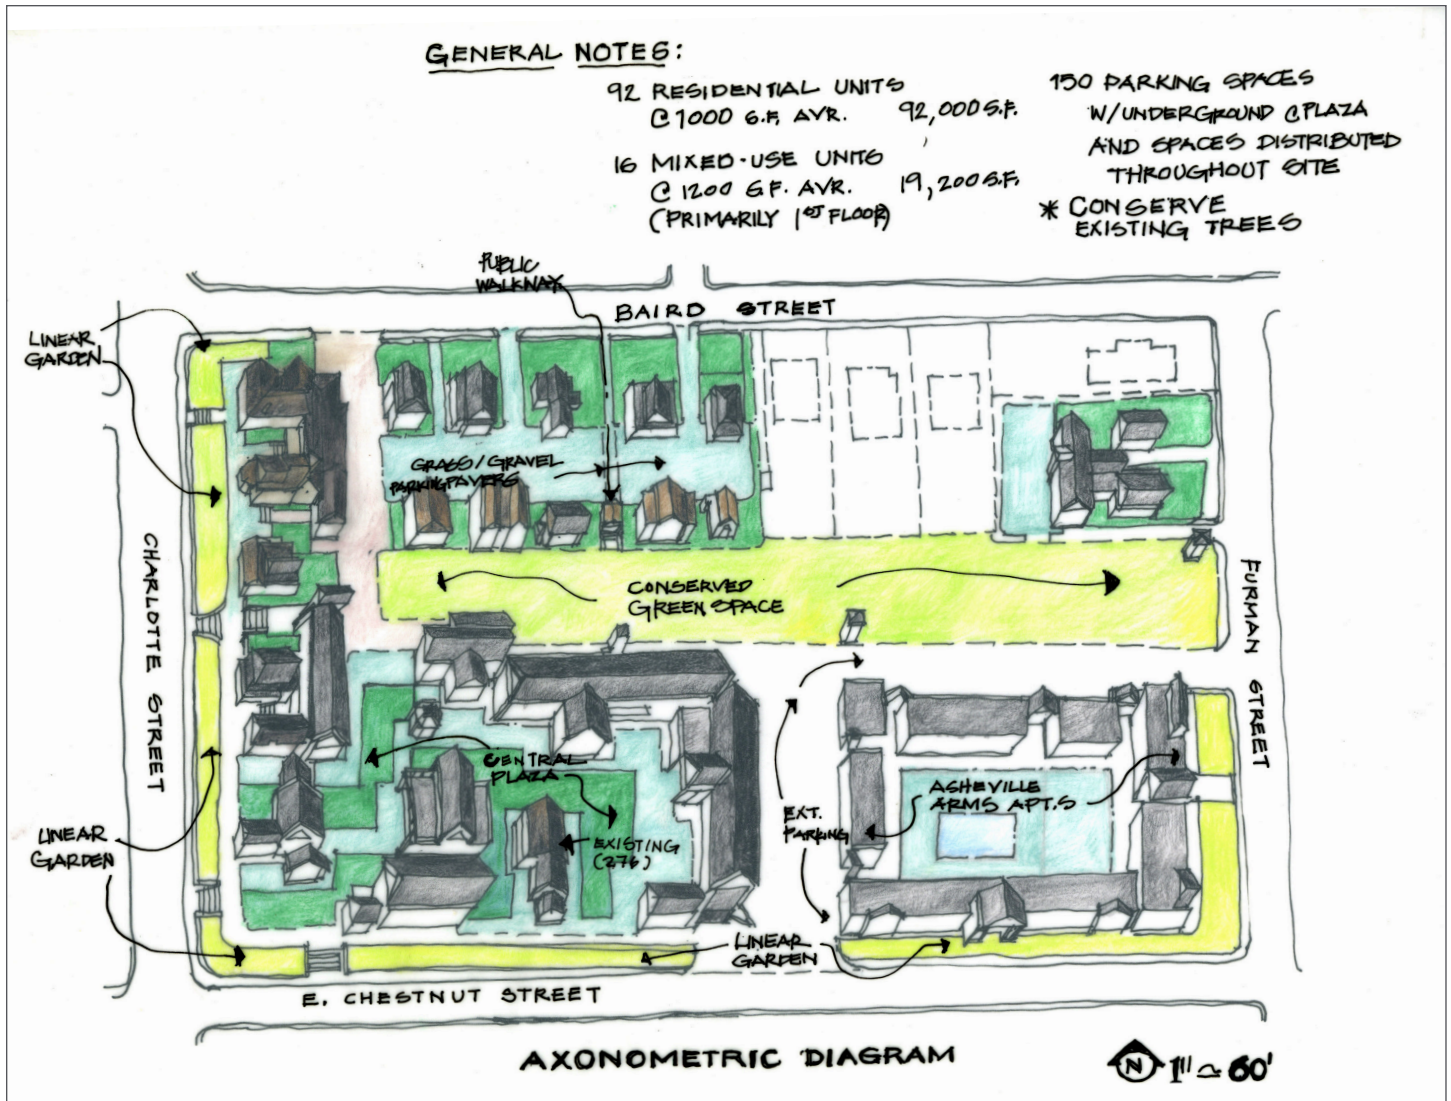 GENERAL NOTES:
92 RESIDENTIAL UNITS
@ 1000 S.F. AVR. 92,000 S.F.
16 MIXED-USE UNITS
@ 1200 S.F. AVR. 19,200 S.F.
(PRIMARILY 1ST FLOOR)
150 PARKING SPACES
W/UNDERGROUND @ PLAZA
AND SPACES DISTRIBUTED
THROUGHOUT SITE
* CONSERVE
EXISTING TREES
PUBLIC
WALKWAY
BAIRD STREET
LINEAR
GARDEN
GRASS/GRAVEL
PARKING PAVERS
CHARLOTTE STREET
CONSERVED
GREEN SPACE
FURMAN STREET
CENTRAL
PLAZA
EXISTING
(276)
EXT.
PARKING
ASHEVILLE
ARMS APT.S
LINEAR
GARDEN
LINEAR
GARDEN
E. CHESTNUT STREET
AXONOMETRIC DIAGRAM
N 1" ≃ 60'